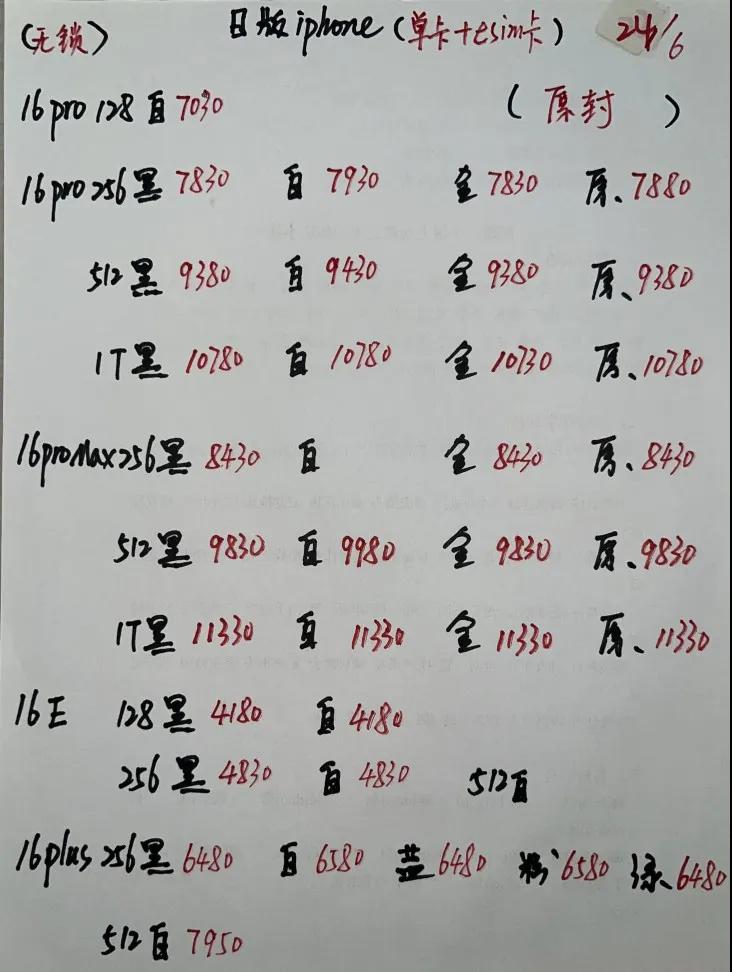 (无锁) 日版iphone(单卡+esim卡) 24/6
16pro 128 白 7030 (原封)
16pro 256 黑 7830 白 7930 金 7830 原、7880
512 黑 9380 白 9430 金 9380 原、9380
1T 黑 10780 白 10780 金 10730 原、10780
16proMax 256 黑 8430 白 金 8430 原、8430
512 黑 9830 白 9980 金 9830 原、9830
1T 黑 11330 白 11330 金 11330 原、11330
16E 128 黑 4180 白 4180
256 黑 4830 白 4830 512 白
16plus 256 黑 6480 白 6580 蓝 6480 粉 6580 绿、6480
512 白 7950